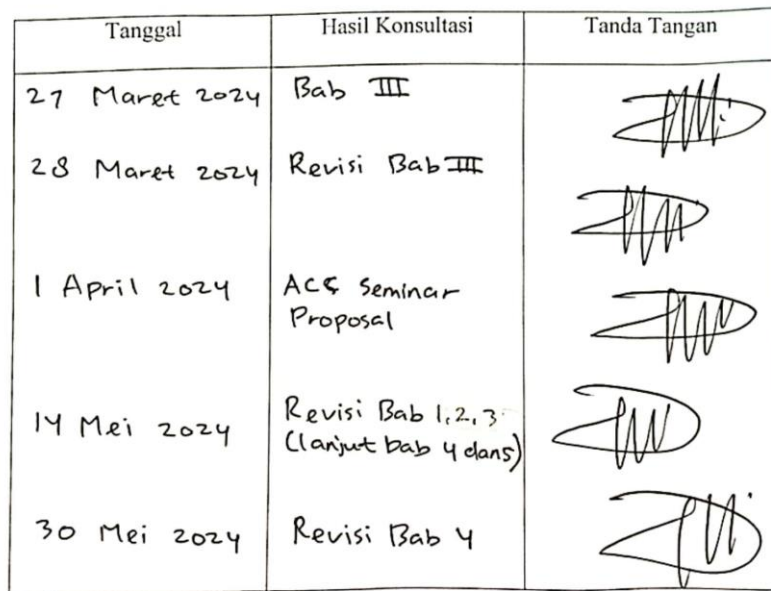 Tanggal Hasil Konsultasi Tanda Tangan
27 Maret 2024 Bab III
28 Maret 2024 Revisi Bab III
1 April 2024 ACC Seminar
Proposal
14 Mei 2024 Revisi Bab 1,2,3
(lanjut bab 4 dan 5)
30 Mei 2024 Revisi Bab 4